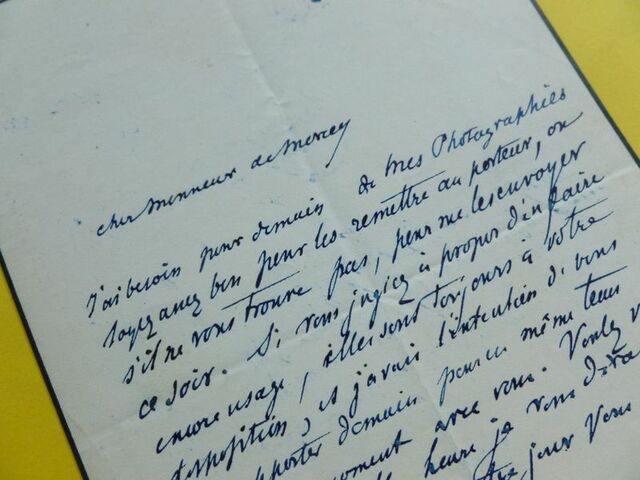 cher Monsieur de Mercey
J'ai besoin pour demain de mes Photographies
soyez assez bon pour les remettre au porteur, ou
s'il ne vous trouve pas, pour me les envoyer
ce soir. Si vous jugiez à propos d'en faire
encore usage, elles sont toujours à votre
disposition, et j'avais l'intention de vous
porter demain pour un même tems
moment avec vous. Voulez
heure je vous
jour Vous